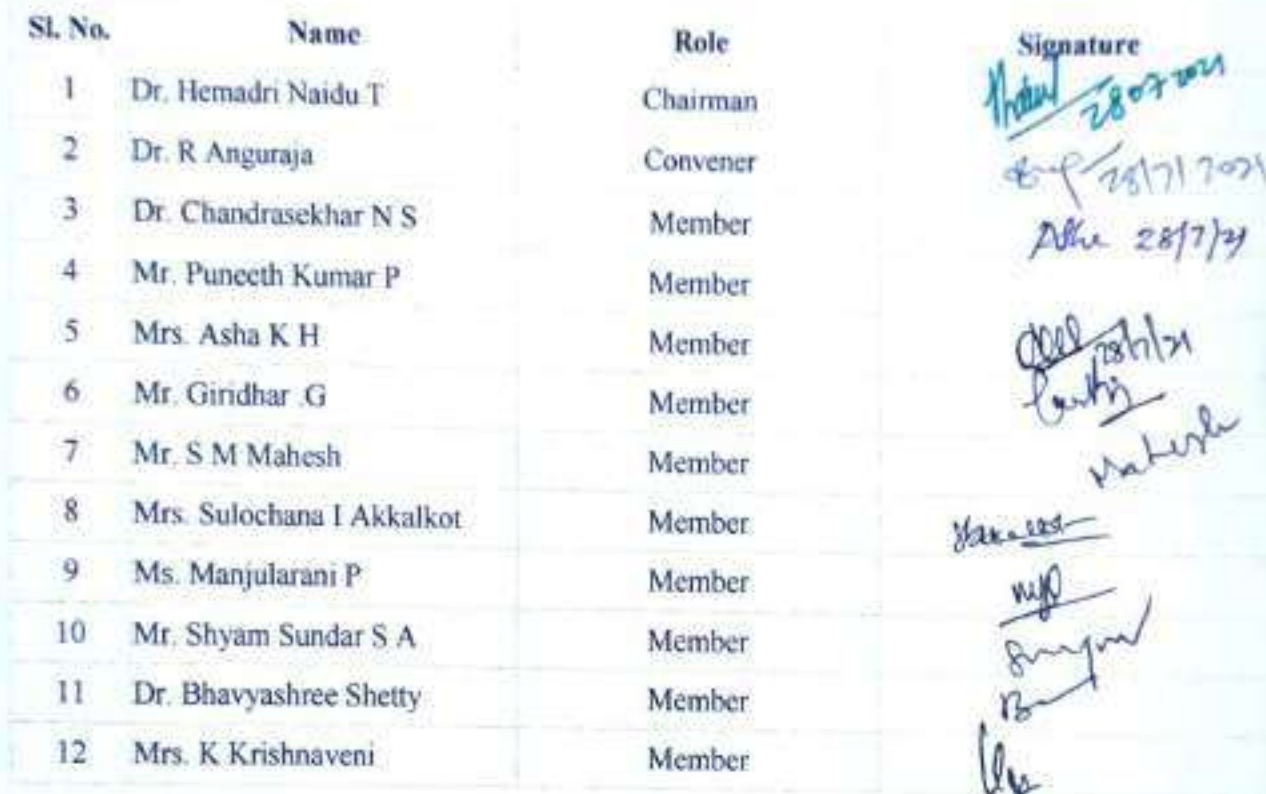 Sl. No. Name Role Signature
1 Dr. Hemadri Naidu T Chairman 28 07 2021
2 Dr. R Anguraja Convener 28/7/2021
3 Dr. Chandrasekhar N S Member 28/7/21
4 Mr. Puneeth Kumar P Member
5 Mrs. Asha K H Member 28/7/21
6 Mr. Giridhar .G Member
7 Mr. S M Mahesh Member Mahesh
8 Mrs. Sulochana I Akkalkot Member
9 Ms. Manjularani P Member
10 Mr. Shyam Sundar S A Member
11 Dr. Bhavyashree Shetty Member
12 Mrs. K Krishnaveni Member